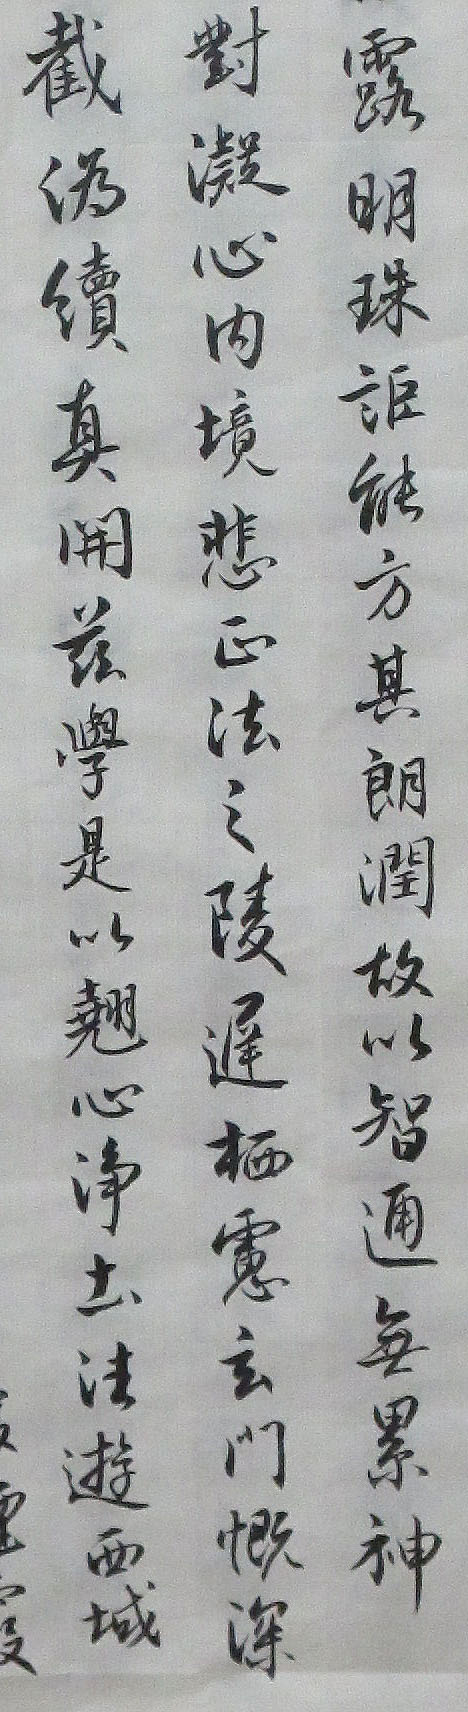 露明珠詎能方其朗潤故以智通無累神
對凝心內境悲正法之陵遲栖慮玄門慨深
截偽續真開茲學是以翹心淨土往遊西域